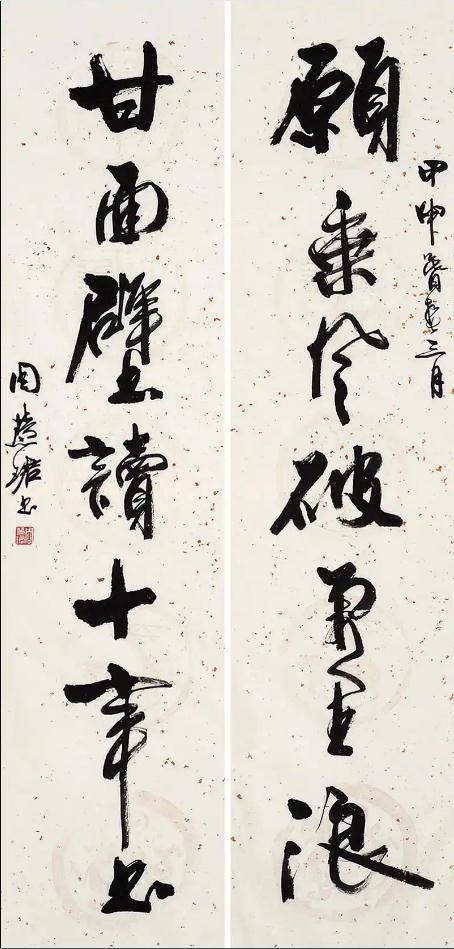 甲申暮春三月
願乘風破萬里浪
甘面壁讀十年書
周慧珺書